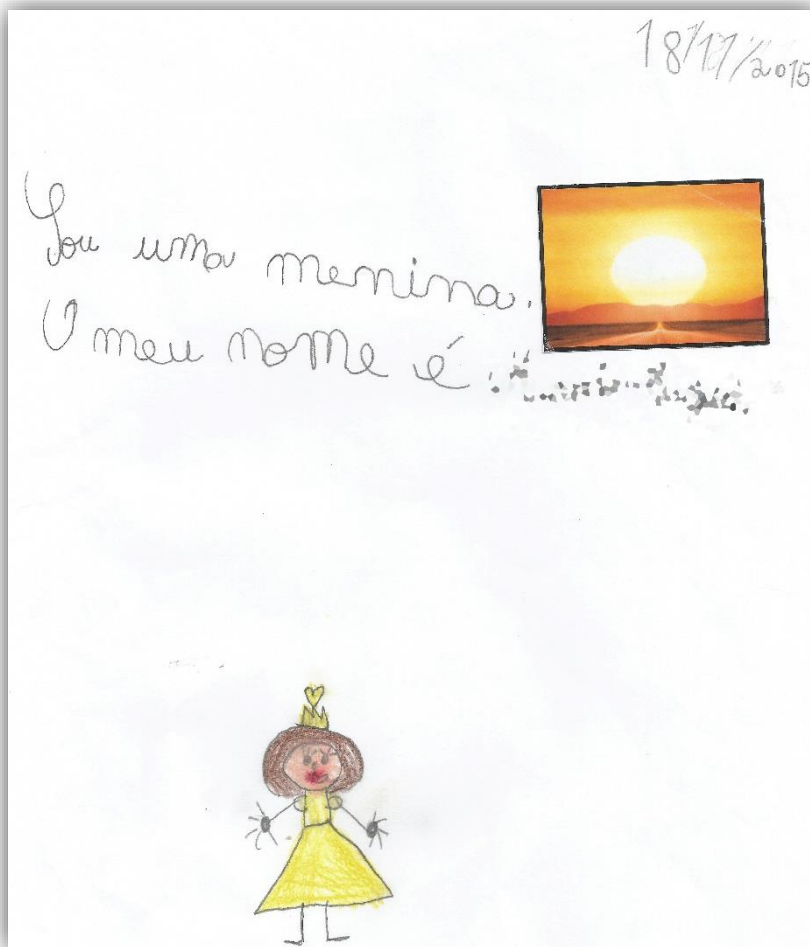 18/11/2015
Sou uma menina.
O meu nome é